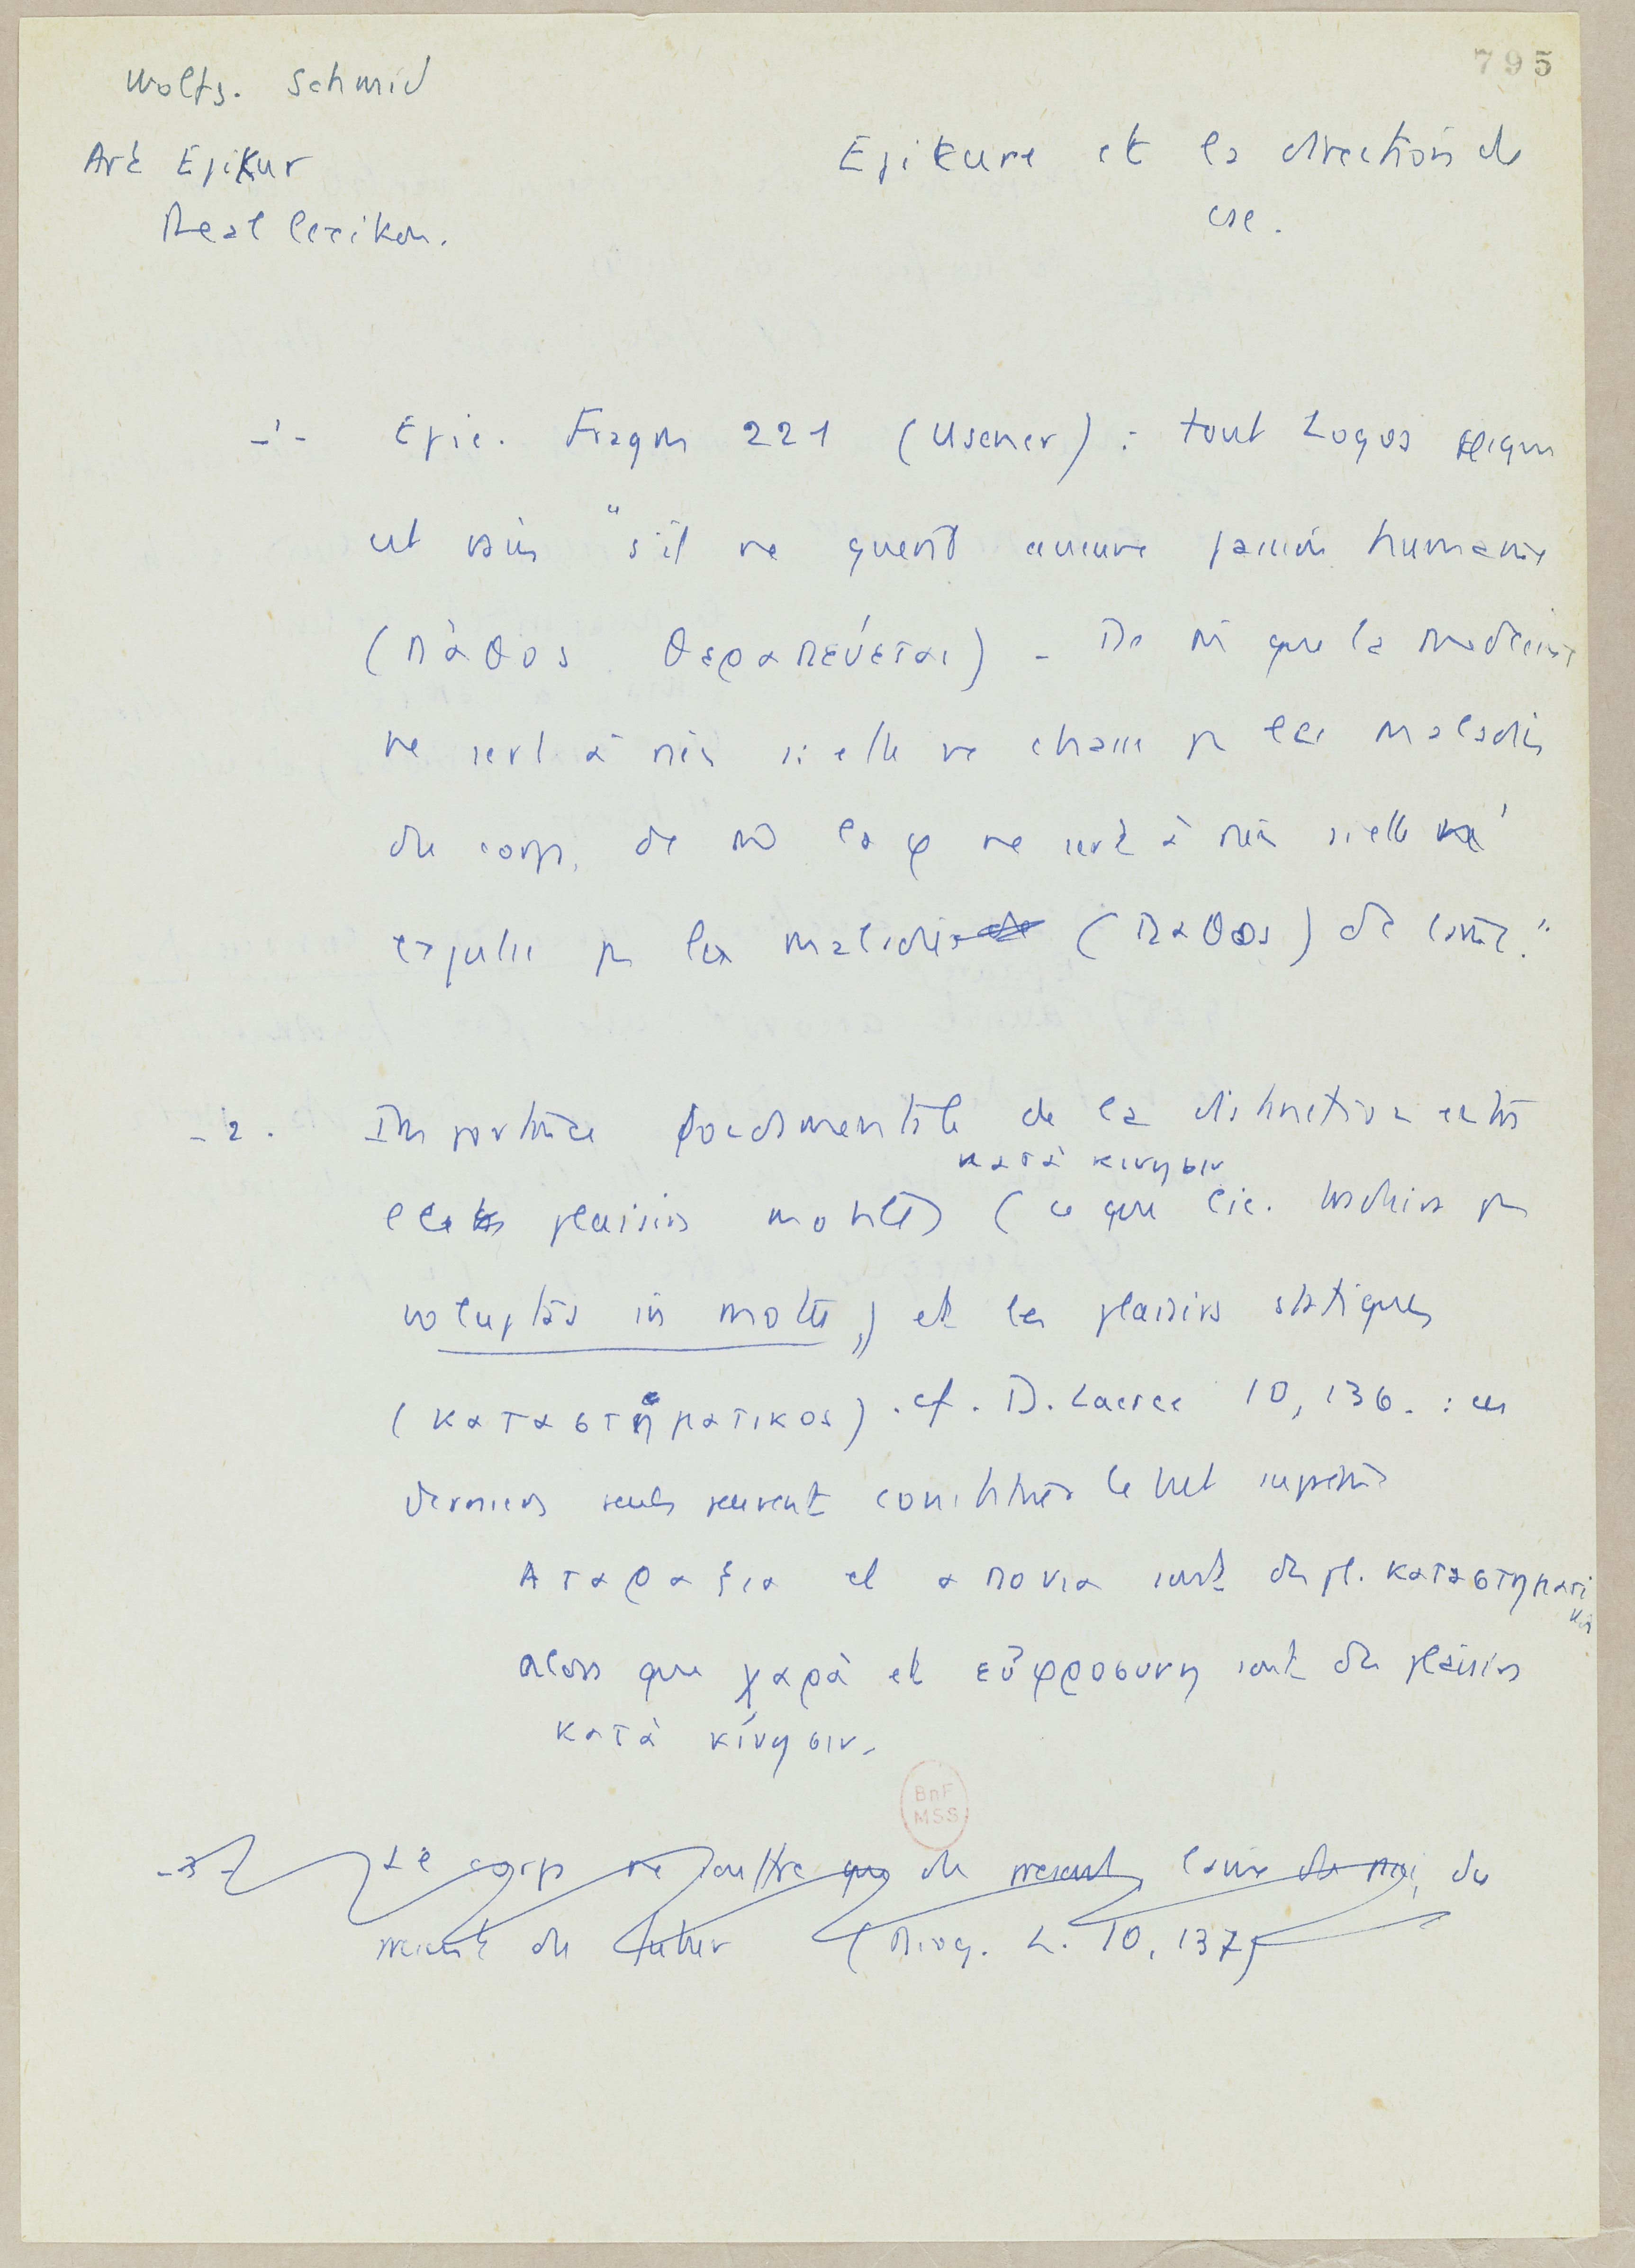 795
Wolfg. Schmid
Art Epikur
Reallexikon.
Epikure et la direction de
csc.
-1- Epic. Fragm 221 (Usener) : tout Logos
est vain "s'il ne guerit aucune passion humaine
(πάθος θεραπεύεται) - De m̂ que la medecine
ne sert à rien si elle ne chasse pas les maladies
du corps, de m̂ la φ ne sert à rien si elle ne
expulse pas les maladies (παθος) de l'âme."
-2. Importance fondamentale de la distinction entre
κατὰ κινησιν
les plaisirs mobiles (ce que Cic. traduira par
voluptas in motu) et les plaisirs statiques
(καταστηματικος). cf. D. Laerce 10, 136. : ces
derniers seuls peuvent constituer le but suprême
Αταραξια et απονια sont des pl. καταστηματι
κοι
alors que χαρὰ et εὐφροσυνη sont des plaisirs
κατὰ κίνησιν.
BnF
MSS
-3- Le corps ne souffre que du present, l'âme du passé, du
present du futur (Diog. L. 10, 137)